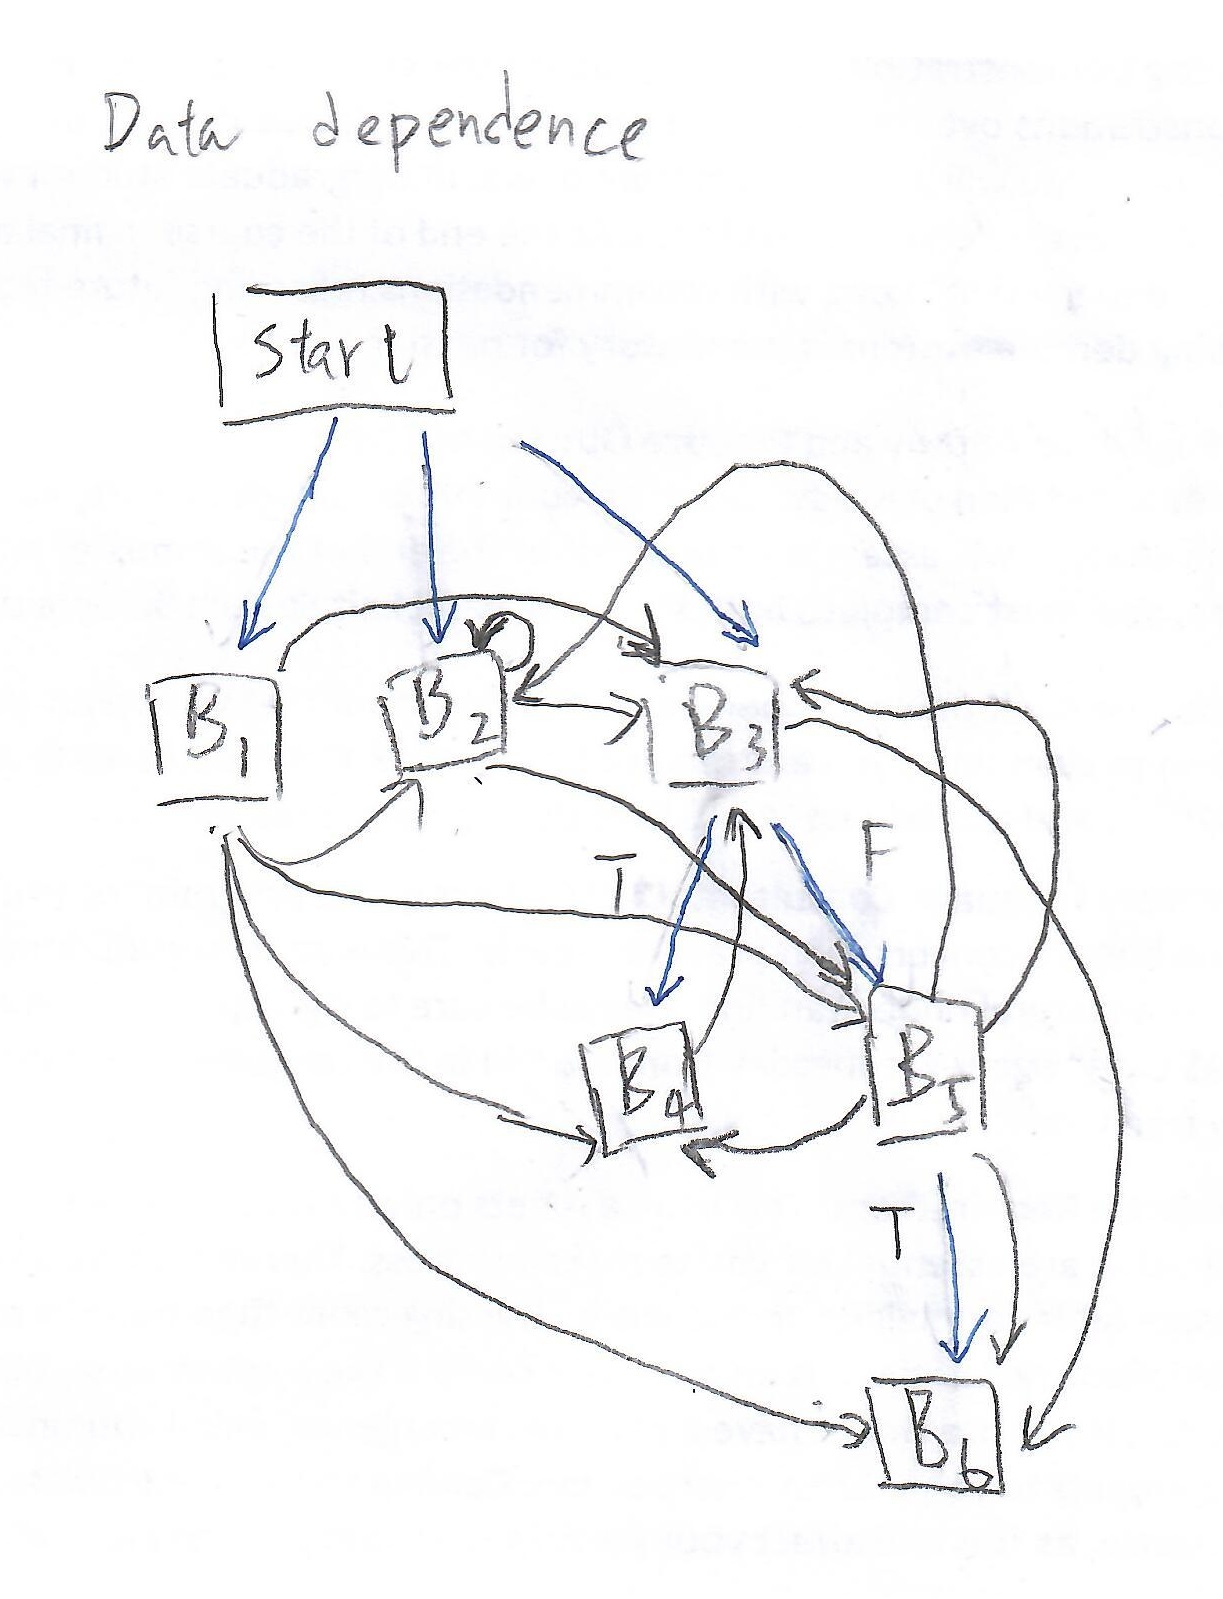 Data dependence
Start
B1
B2
B3
F
T
B4
B5
T
B6